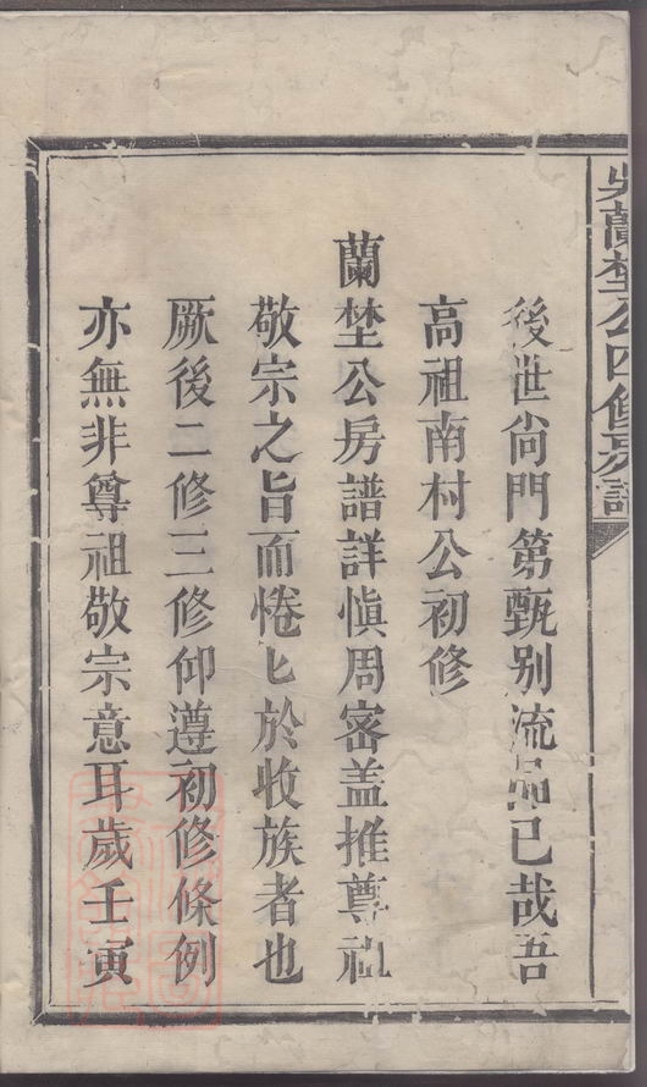 吳蘭埜公四修房譜
後世尙門第甄别流品已哉吾
高祖南村公初修
蘭埜公房譜詳愼周宻盖推尊祖
敬宗之旨而惓匕於收族者也
厥後二修三修仰遵初修條例
亦無非尊祖敬宗意耳歲壬寅